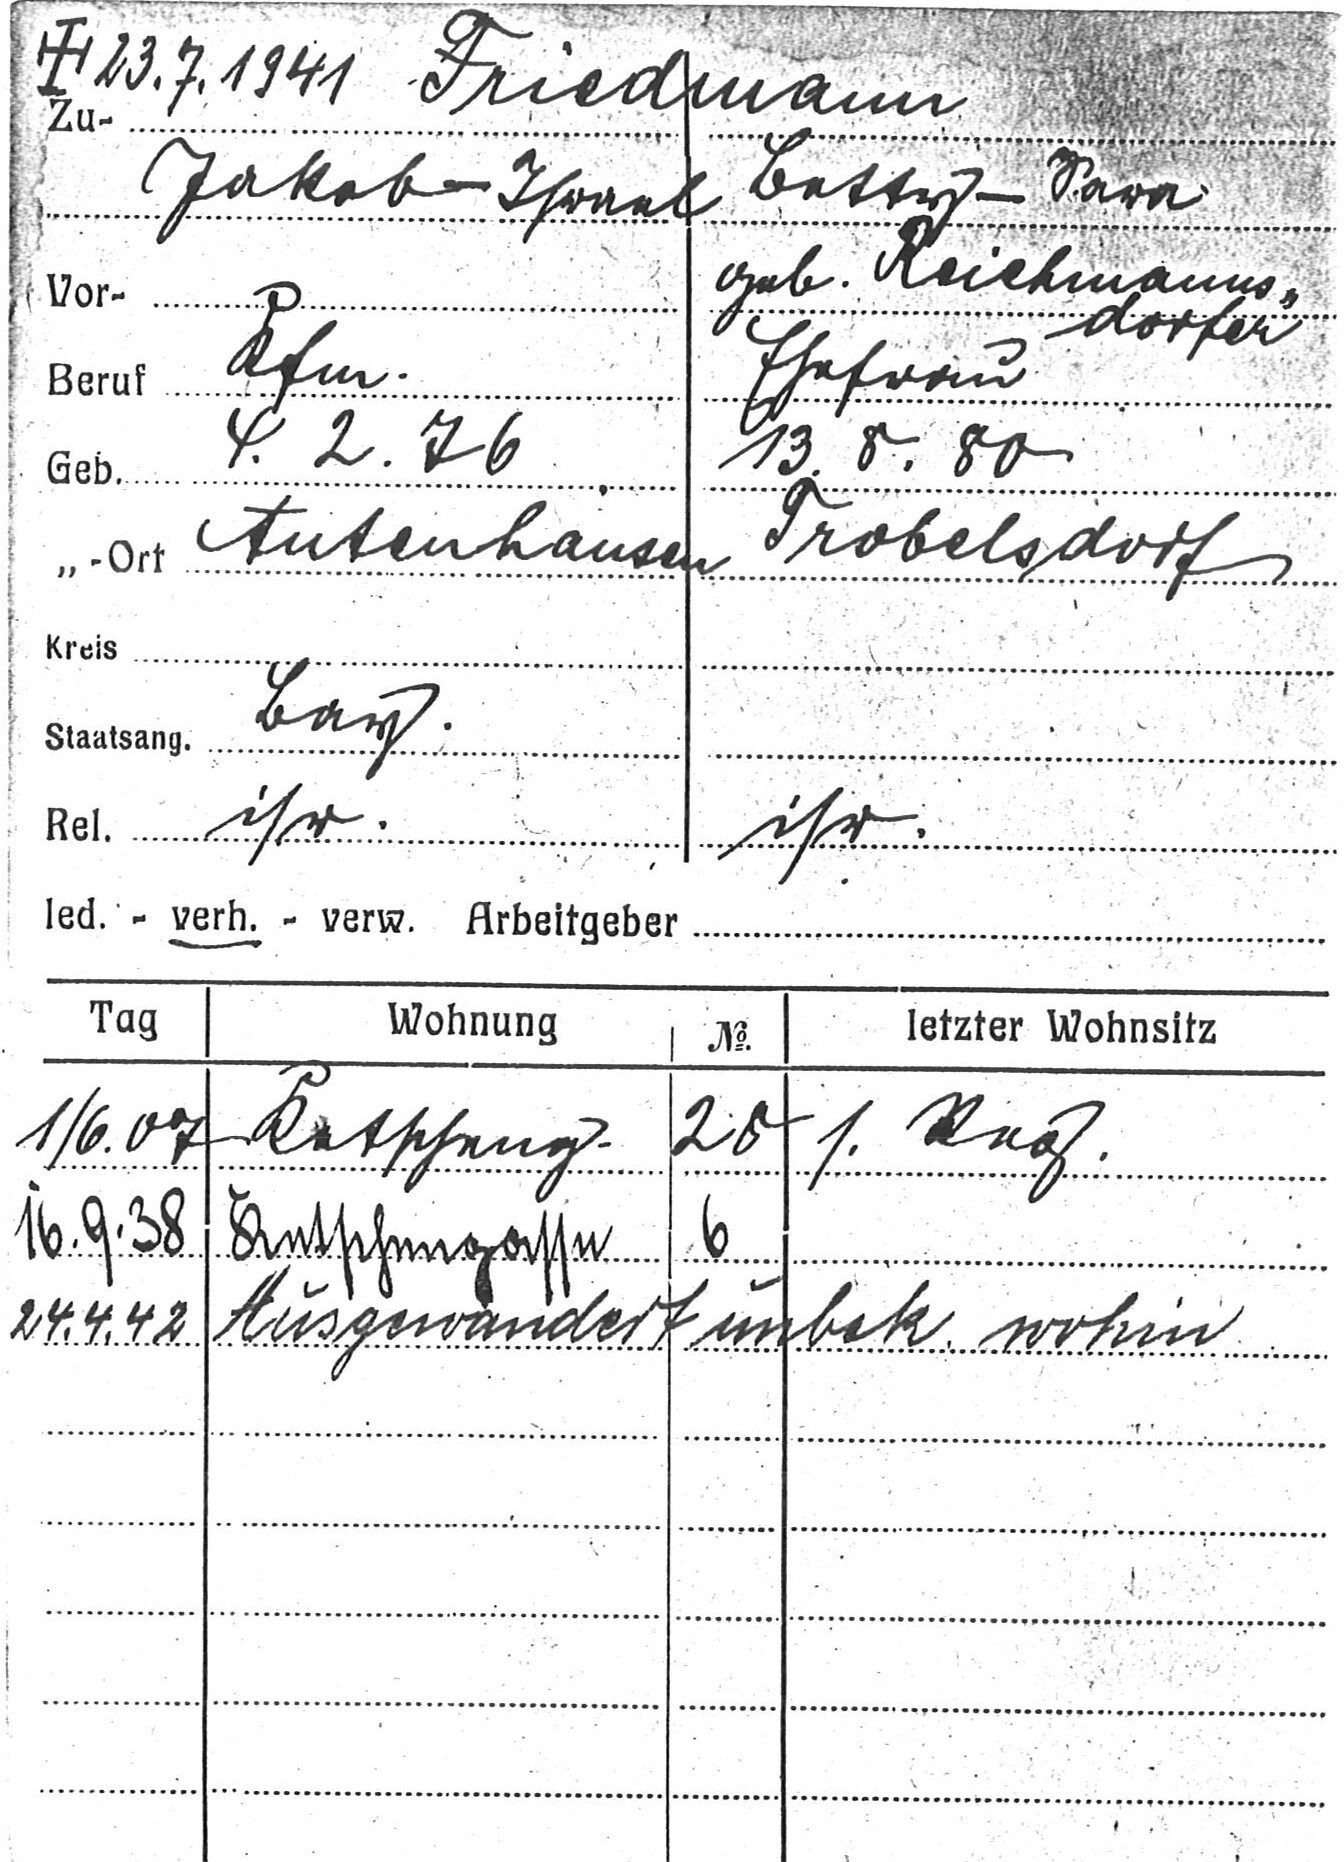 23.7.1941 Friedmann
Zu-
Jakob-Israel Betty-Sara
Vor- geb. Reichmanns„
dorfer
Beruf Kfm. Ehefrau
Geb. 4. 2. 76 13. 8. 80
„-Ort Autenhausen Trabelsdorf
Kreis
Staatsang. Bay.
Rel. isr. isr.
led. - verh. - verw. Arbeitgeber
Tag Wohnung No. letzter Wohnsitz
1/6.07 Ketscheng. 28 s.
16.9.38 Ketschengasse 6
24.4.42 Ausgewandert unbek. wohin